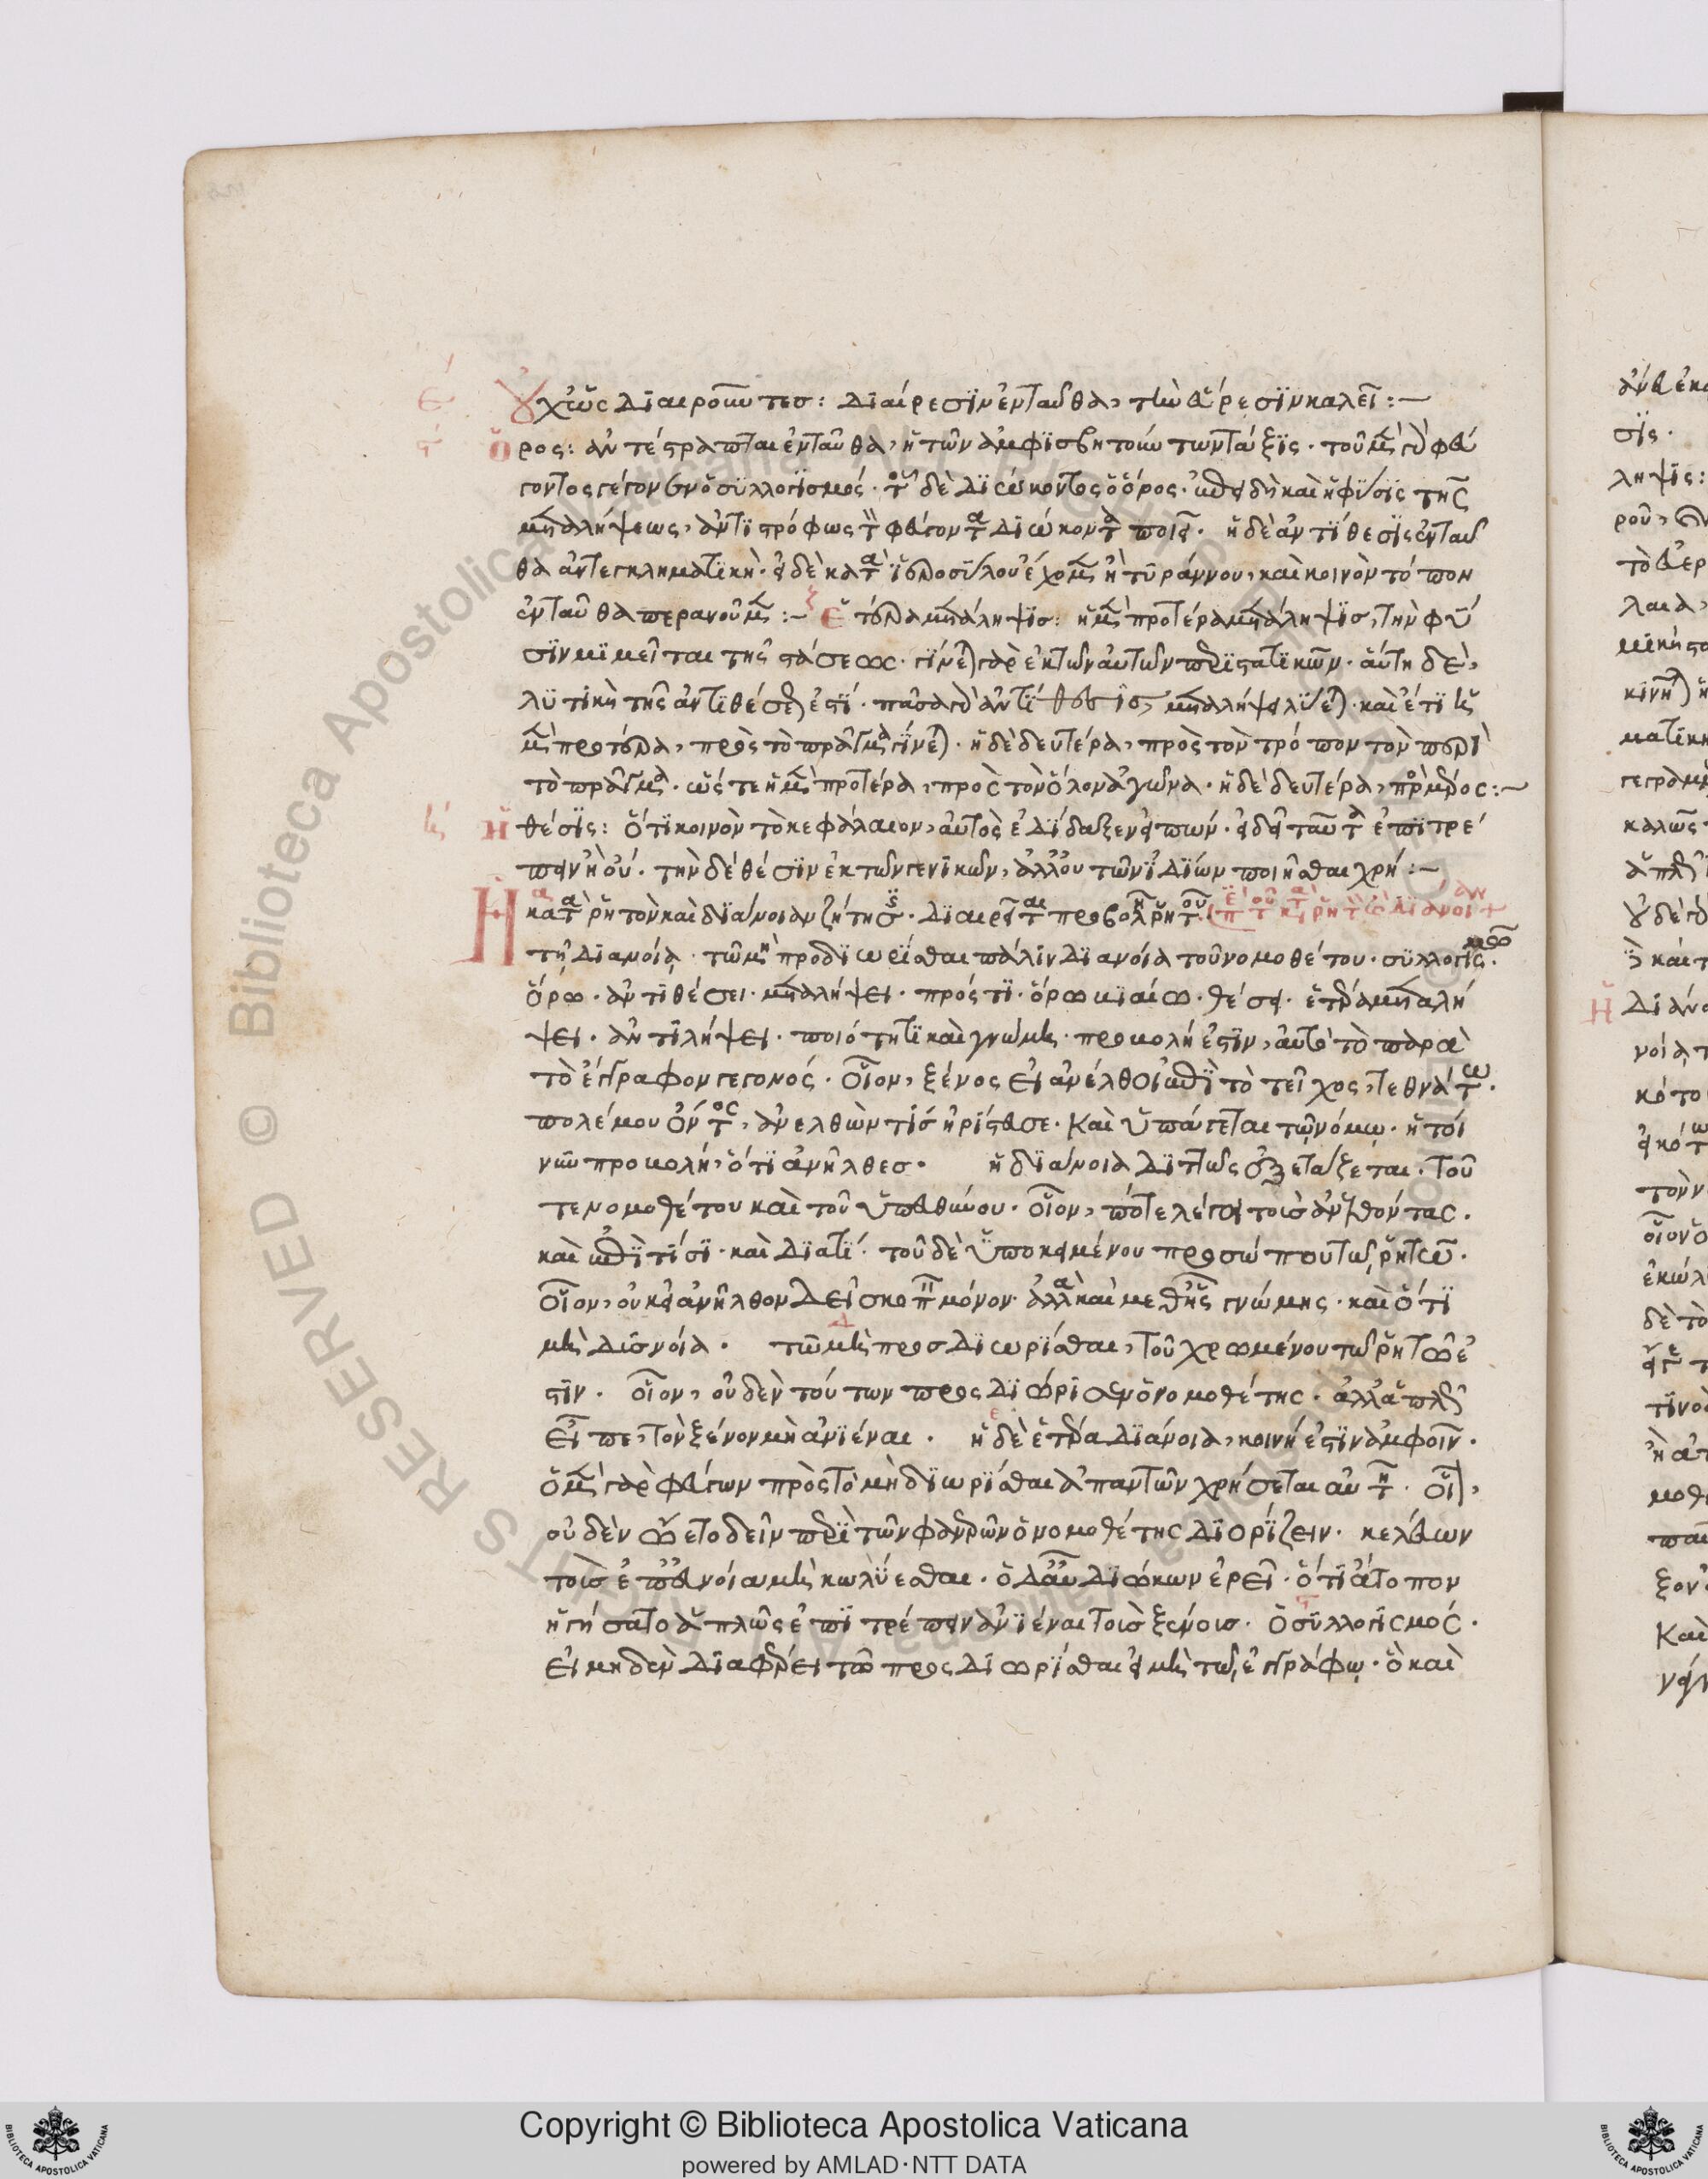 οὐχ ὡς διαιροῦντες: διαίρεσιν ἐνταῦθα, τὴν εὕρεσιν καλεῖ:
ὅρος: ἀντέστραπται ἐνταῦθα, ἡ τῶν ἀμφισβητούντων τάξις· τοῦ μὲν γὰρ φεύ
γοντος γέγονεν ὁ συλλογισμός· τοῦ δὲ διώκοντος ὁ ὅρος· ἐπειδὴ καὶ ἡ φύσις τῆς
μεταλήψεως, ἀντιστρόφως τὸν φεύγοντα διώκοντα ποιεῖ· ἡ δὲ ἀντίθεσις ἐνταῦ
θα ἀντεγκληματικὴ· εἰ δὲ κατὰ ἱεροσύλου ἔχομεν ἢ τυράννου, καὶ κοινὸν τόπον
ἐνταῦθα περανοῦμεν: ἑτέρα μετάληψις: ἡ μὲν προτέρα μετάληψις, τὴν φύ
σιν μιμεῖται τῆς στάσεως· γίνεται γὰρ ἐκ τῶν αὐτῶν περιστατικῶν· αὕτη δὲ,
λυτικὴ τῆς ἀντιθέσεως ἐστί· πᾶσα γὰρ ἀντίθεσις, μεταλήψει λύεται· καὶ ἔτι ἡ
μὲν προτέρα, πρὸς τὸ πρᾶγμα γίνεται· ἡ δὲ δευτέρα, πρὸς τὸν τρόπον τὸν περὶ
τὸ πρᾶγμα· ὥστε ἡ μὲν προτέρα, πρὸς τὸν ὅλον ἀγῶνα· ἡ δὲ δευτέρα, πρὸς μέρος:
ἡ θέσις: ὅτι κοινὸν τὸ κεφάλαιον, αὐτὸς ἐδίδαξεν εἰπών· εἰ δεῖ ταῦτα ἐπιτρέ
πειν ἢ οὔ· τὴν δὲ θέσιν ἐκ τῶν γενικῶν, ἀλλ' οὐ τῶν ἰδίων ποιεῖσθαι χρή:
Ἡ κατὰ ῥητὸν καὶ διάνοιαν ζήτησις· διαιρεῖται προβολῇ ῥητοῦ· περὶ τοῦ κατὰ ῥητὸν καὶ διάνοιαν
τῇ διανοίᾳ· τῷ μὴ προσδιωρίσθαι πάλιν διανοίᾳ τοῦ νομοθέτου· συλλογισμῷ·
ὅρῳ· ἀντιθέσει· μεταλήψει· πρός τι· ὅρῳ βιαίῳ· θέσει· ἑτέρᾳ μεταλή
ψει· ἀντιλήψει· ποιότητι καὶ γνώμῃ· προβολή ἐστιν, αὐτὸ τὸ παρὰ
τὸ ἔγγραφον γεγονός· οἷον, ξένος εἰ ἀνέλθοι ἐπὶ τὸ τεῖχος, τεθνάτω·
πολέμου ὄντος, ἀνελθών τις ἠρίστευσε· καὶ ὑπάγεται τῷ νόμῳ· ἡ τοί
νυν προβολή, ὅτι ἀνῆλθες· ἡ διάνοια διττῶς ἐξετάζεται· τοῦ
τε νομοθέτου καὶ τοῦ ὑπευθύνου· οἷον, πότε λέγει τοῖς ἀνελθόντας·
καὶ ἐπὶ τίσι· καὶ διατί· τοῦ δὲ ὑποκειμένου προσώπου τῷ ῥητῷ·
οἷον, οὐκ εἰ ἀνῆλθον δεῖ σκοπεῖν μόνον· ἀλλὰ καὶ μεθ' ἧς γνώμης· καὶ ὅτι
μὴ διανοίᾳ· τῷ μὴ προσδιωρίσθαι, τοῦ χρωμένου τῷ ῥητῷ ἐ
στιν· οἷον, οὐδὲν τούτων προσδιώρισεν ὁ νομοθέτης· ἀλλ' ἁπλῶς
εἶπε, τὸν ξένον μὴ ἀνιέναι· ἡ δὲ ἑτέρα διάνοια, κοινή ἐστιν ἀμφοῖν·
ὁ μὲν γὰρ φεύγων πρὸς τὸ μὴ διωρίσθαι ἁπάντων χρήσεται αὐτῇ· οἷον,
οὐδὲν ᾤετο δεῖν περὶ τῶν φανερῶν ὁ νομοθέτης διορίζειν· κελεύων
τοῖς ἐπ' εὐνοίᾳ μὴ κωλύεσθαι· ὁ δ' αὖ διώκων ἐρεῖ· ὅτι ἄτοπον
ἡγήσατο ἁπλῶς ἐπιτρέπειν ἀνιέναι τοῖς ξένοις· ὁ συλλογισμός·
εἰ μηδὲν διαφέρει τῷ προσδιωρίσθαι εἰ μὴ τῷ ἐγγράφῳ· ὃ καὶ